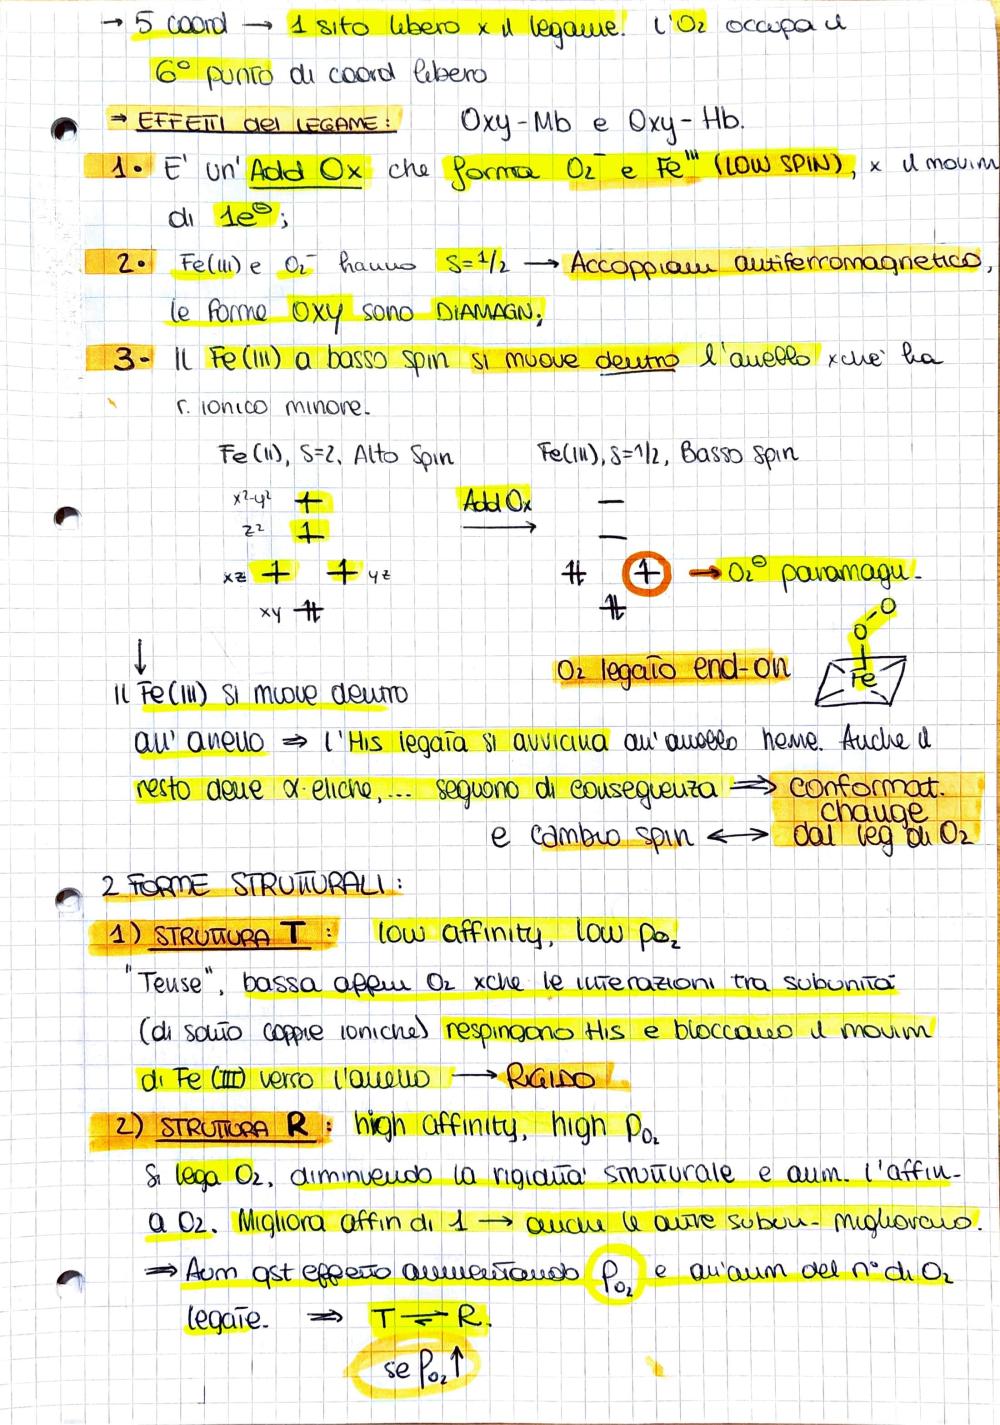 → 5 coord → 1 sito libero x il legame. L'O₂ occupa il
6° punto di coord libero
⇒ EFFETTI del LEGAME: Oxy-Mb e Oxy-Hb.
1. E' un'Add Ox che forma O₂⁻ e Feᴵᴵᴵ (LOW SPIN), x il movim
di 1e⊖;
2. Fe(III) e O₂⁻ hanno S=1/2 → Accoppiam antiferromagnetico,
le forme OXY sono DIAMAGN;
3- Il Fe(III) a basso spin si muove dentro l'anello xchè ha
r. ionico minore.
Fe(II), S=2, Alto Spin Fe(III), S=1/2, Basso Spin
x²-y² Add Ox
z²
xz yz → O₂⊖ paramagn.
xy
O₂ legato end-on
O-O
Fe
Il Fe(III) si muove dentro
all'anello ⇒ l'His legata si avvicina all'anello heme. Anche il
resto delle α-eliche, ... seguono di conseguenza ⇒ conformat.
change
e cambio spin ↔ dal leg di O₂
2 FORME STRUTTURALI:
1) STRUTTURA T: low affinity, low pO₂
"Tense", bassa affin O₂ xche le interazioni tra subunità
(di solito coppie ioniche) respingono His e bloccano il movim
di Fe(III) verso l'anello → RIGIDO
2) STRUTTURA R: high affinity, high pO₂
Si lega O₂, diminuendo la rigidità strutturale e aum. l'affin-
a O₂. Migliora affin di 1 → anche le altre subun- migliorano.
⇒ Aum qst effetto aumentando pO₂ e all'aum del n° di O₂
legate. ⇒ T ⇌ R.
se pO₂↑